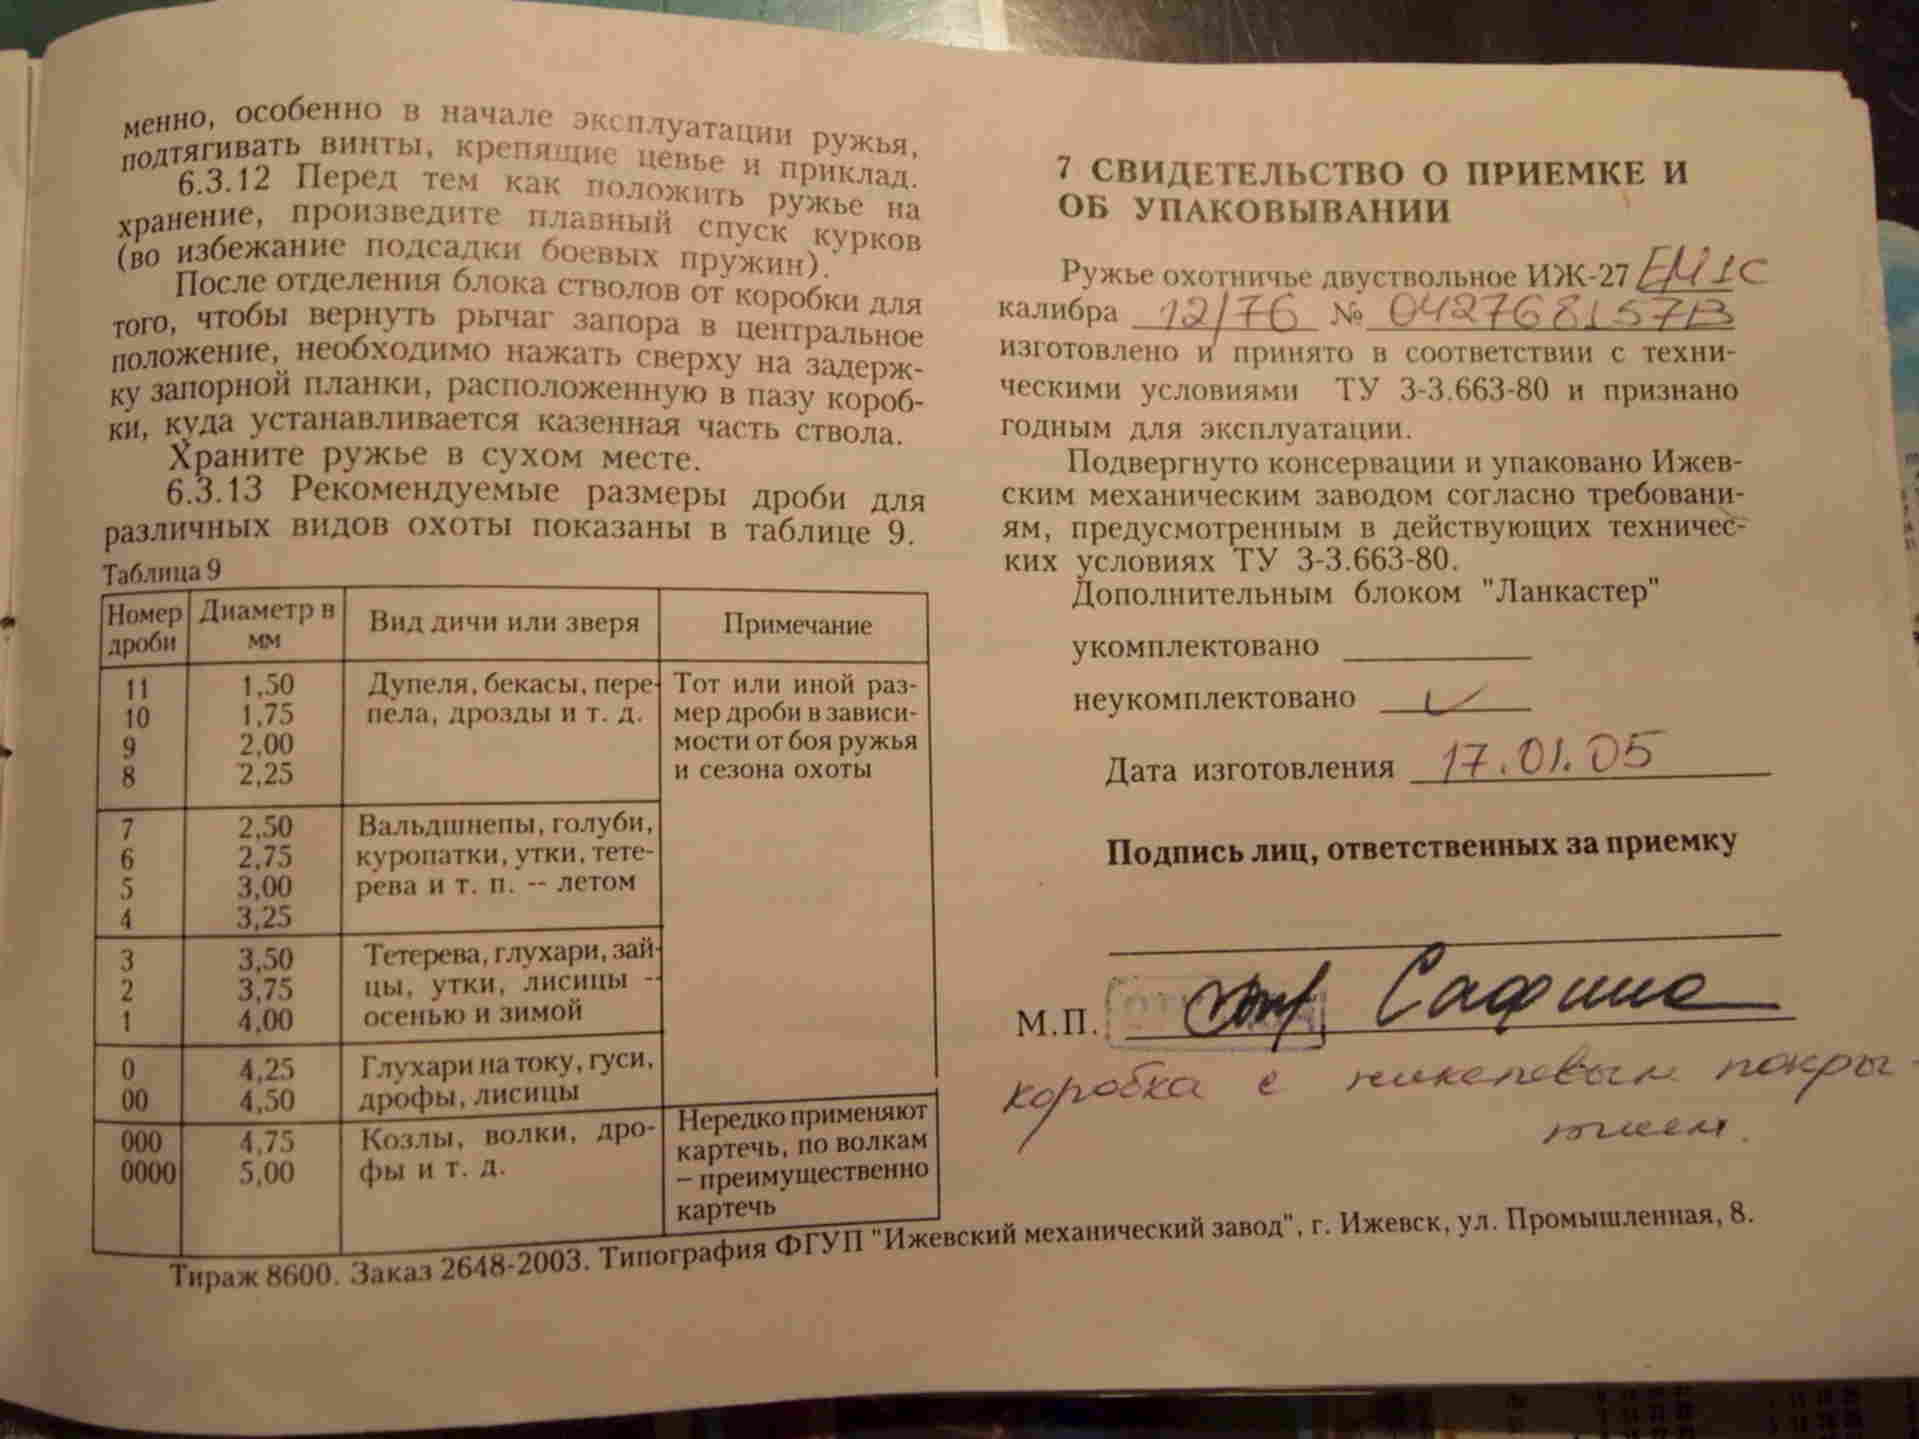 менно, особенно в начале эксплуатации ружья,
подтягивать винты, крепящие цевье и приклад.
6.3.12 Перед тем как положить ружье на
хранение, произведите плавный спуск курков
(во избежание подсадки боевых пружин).
После отделения блока стволов от коробки для
того, чтобы вернуть рычаг запора в центральное
положение, необходимо нажать сверху на задерж-
ку запорной планки, расположенную в пазу короб-
ки, куда устанавливается казенная часть ствола.
Храните ружье в сухом месте.
6.3.13 Рекомендуемые размеры дроби для
различных видов охоты показаны в таблице 9.
Таблица 9
Номер дроби Диаметр в мм Вид дичи или зверя Примечание
11 1,50 Дупеля, бекасы, пере- Тот или иной раз-
10 1,75 пела, дрозды и т. д. мер дроби в зависи-
9 2,00 мости от боя ружья
8 2,25 и сезона охоты
7 2,50 Вальдшнепы, голуби,
6 2,75 куропатки, утки, тете-
5 3,00 рева и т. п. -- летом
4 3,25
3 3,50 Тетерева, глухари, зай-
2 3,75 цы, утки, лисицы --
1 4,00 осенью и зимой
0 4,25 Глухари на току, гуси,
00 4,50 дрофы, лисицы
000 4,75 Козлы, волки, дро- Нередко применяют
0000 5,00 фы и т. д. картечь, по волкам
– преимущественно
картечь
7 СВИДЕТЕЛЬСТВО О ПРИЕМКЕ И
ОБ УПАКОВЫВАНИИ
Ружье охотничье двуствольное ИЖ-27 ЕМ1С
калибра 12/76 № 042768157В
изготовлено и принято в соответствии с техни-
ческими условиями ТУ 3-3.663-80 и признано
годным для эксплуатации.
Подвергнуто консервации и упаковано Ижев-
ским механическим заводом согласно требовани-
ям, предусмотренным в действующих техничес-
ких условиях ТУ 3-3.663-80.
Дополнительным блоком "Ланкастер"
укомплектовано
неукомплектовано ✓
Дата изготовления 17.01.05
Подпись лиц, ответственных за приемку
М.П. Сафина
коробка с никелевым покры-
тием.
Тираж 8600. Заказ 2648-2003. Типография ФГУП "Ижевский механический завод", г. Ижевск, ул. Промышленная, 8.